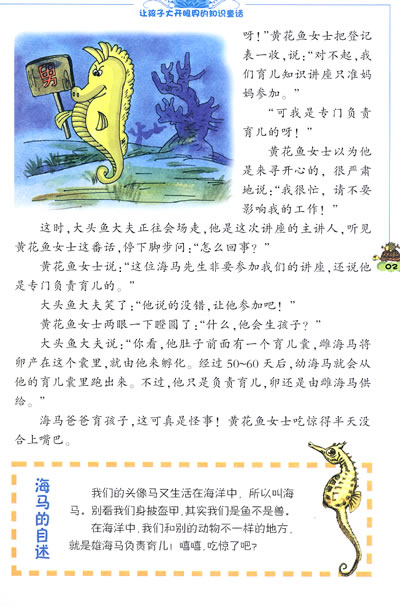 让孩子大开眼界的知识童话
男
呀！”黄花鱼女士把登记
表一收，说：“对不起，我
们育儿知识讲座只准妈
妈参加。”
“可我是专门负责
育儿的呀！”
黄花鱼女士以为他
是来寻开心的，很严肃
地说：“我很忙，请不要
影响我的工作！”
这时，大头鱼大夫正往会场走，他是这次讲座的主讲人，听见
黄花鱼女士这番话，停下脚步问：“怎么回事？”
黄花鱼女士说：“这位海马先生非要参加我们的讲座，还说他
是专门负责育儿的。”
大头鱼大夫笑了：“他说的没错，让他参加吧！”
黄花鱼女士两眼一下瞪圆了：“什么，他会生孩子？”
大头鱼大夫说：“你看，他肚子前面有一个育儿囊，雌海马将
卵产在这个囊里，就由他来孵化。经过50~60天后，幼海马就会从
他的育儿囊里跑出来。不过，他只是负责育儿，卵还是由雌海马供
给。”
海马爸爸育孩子，这可真是怪事！黄花鱼女士吃惊得半天没
合上嘴巴。
02
海马的自述
我们的头像马又生活在海洋中，所以叫海
马。别看我们身披盔甲，其实我们是鱼不是兽。
在海洋中，我们和别的动物不一样的地方，
就是雄海马负责育儿！嘻嘻，吃惊了吧？